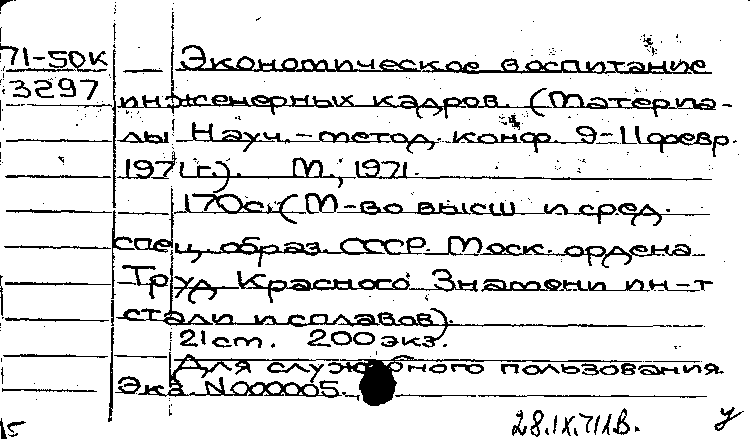 71-50к Экономическое воспитание
3297 инженерных кадров. (Материа-
лы Науч.-метод. конф. 9-11 февр.
1971 г.). М., 1971.
170с. (М-во высш и сред.
спец. образ. СССР. Моск. ордена
Труд Красного Знамени ин-т
стали и сплавов).
21 ст. 200 экз.
Для служебного пользования.
Экз. N000005.
15 28.IX.71